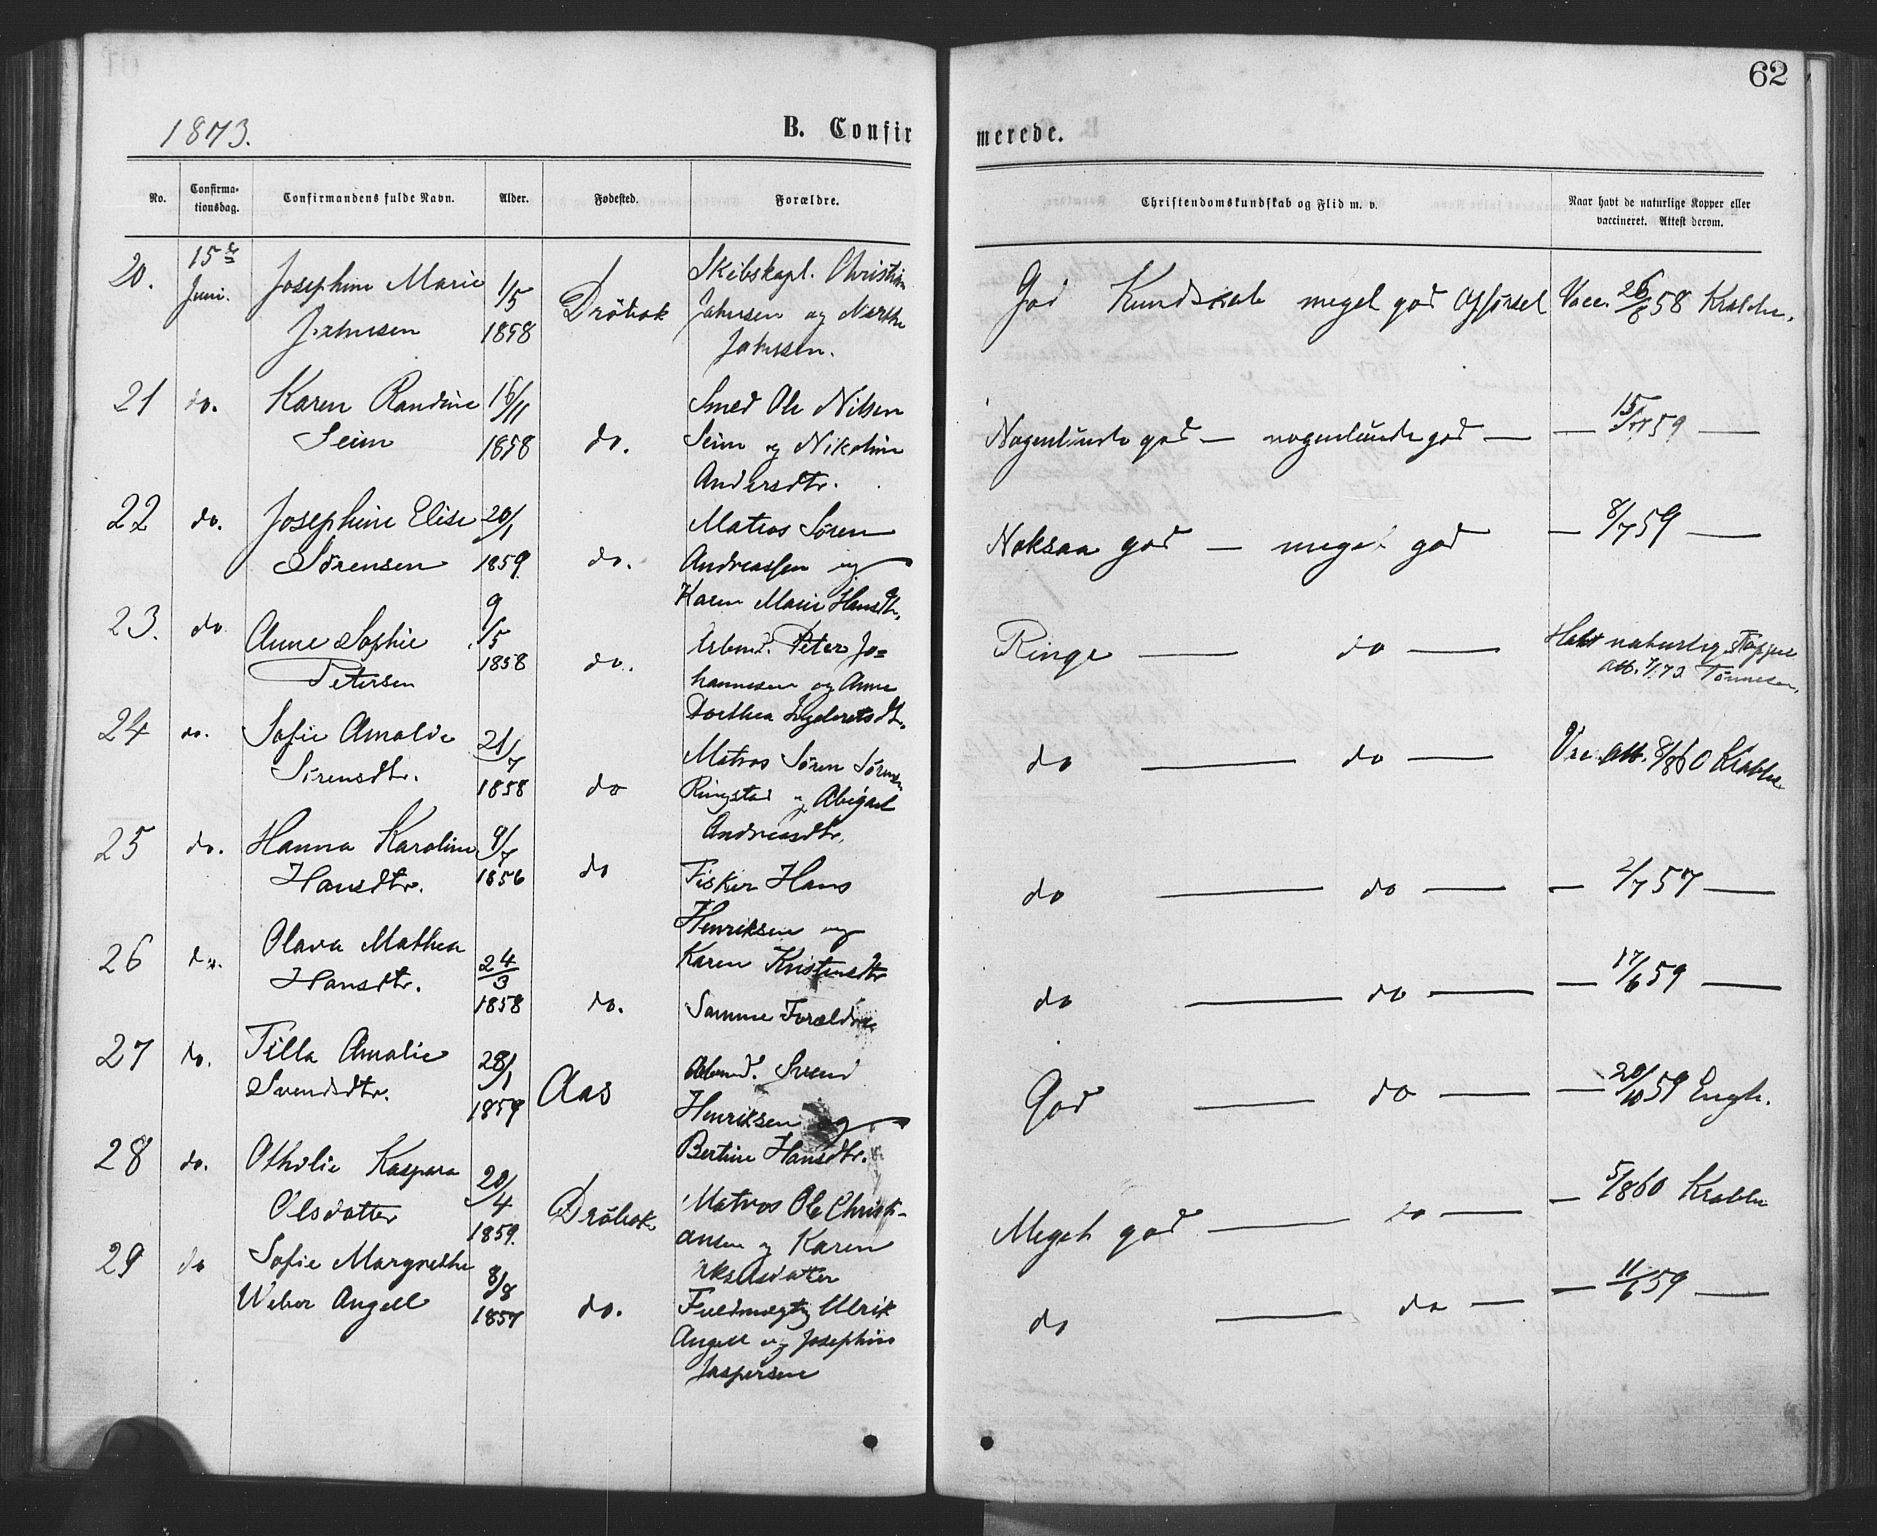 62
1873.
B. Confirmerede.
No.
Confirma-
tionsdag.
Confirmandens fulde Navn.
Alder.
Fødested.
Forældre.
Christendomskundskab og Flid m. v.
Naar havt de naturlige Kopper eller
vaccineret. Attest derom.
20. 15de Juni. Josephine Marie 1/5 1858 Dröbak Skibskapt. Christian
Jahnsen
Jahnsen og Marthe
Jahnsen.
God Kundskab meget god Opförsel Vacc. 26/8 58 Krabbe.
21 do. Karen Randine 16/11 1858 do. Smed Ole Nilsen
Seim
Seim og Nikoline
Andersdtr.
Nogenlunde god — nogenlunde god — — 15/11 59 —
22 do. Josephine Elise 20/1 1859. do. Matros Søren
Sørensen
Andreassen og
Karen Marie Hansdtr.
Noksaa god — meget god — 8/7 59 —
23. do Anne Sophie 9/5 1858 do. Arbmd. Peter Jo=
Petersen
hannesen og Anne
Dorthea
Ringe — do — Havt naturlig Kopper
Att. 7/1 73 Tönnesen.
24 do. Sofie Amalie 21/7 1858 do Matros Søren Sørensen
Sörensdtr.
Ringstad og Abigael
Andreasdtr.
do — do — Att. 8/8 60 Krabbe
25 do. Hanna Karoline 9/7 1856 do Fisker Hans
Hansdtr.
Henriksen og
Karen Kristensdtr
do — do — — 2/7 57 —
26 do. Olava Mathea 24/3 1858 do. Samme Forældre
Hansdtr.
do — do — — 17/6 59 —
27 do. Tilla Amalie 28/1 1859 Aas Arbmd. Svend
Svendsdtr.
Henriksen og
Bertine Hansdtr.
God — do — — 20/10 59 Engh.
28 do. Othilie Kaspara 20/4 1859. Dröbak Matros Ole Christi-
Olsdatter
ansen og Karen
Meget god — do — — 5/8 60 Krabbe
29 do Sofie Margrethe 8/8 1857 do. Fuldmægtig Ulrik
Weber Angell
Angell og Josephine
Jaspersen
do — do — — 11/6 59 —